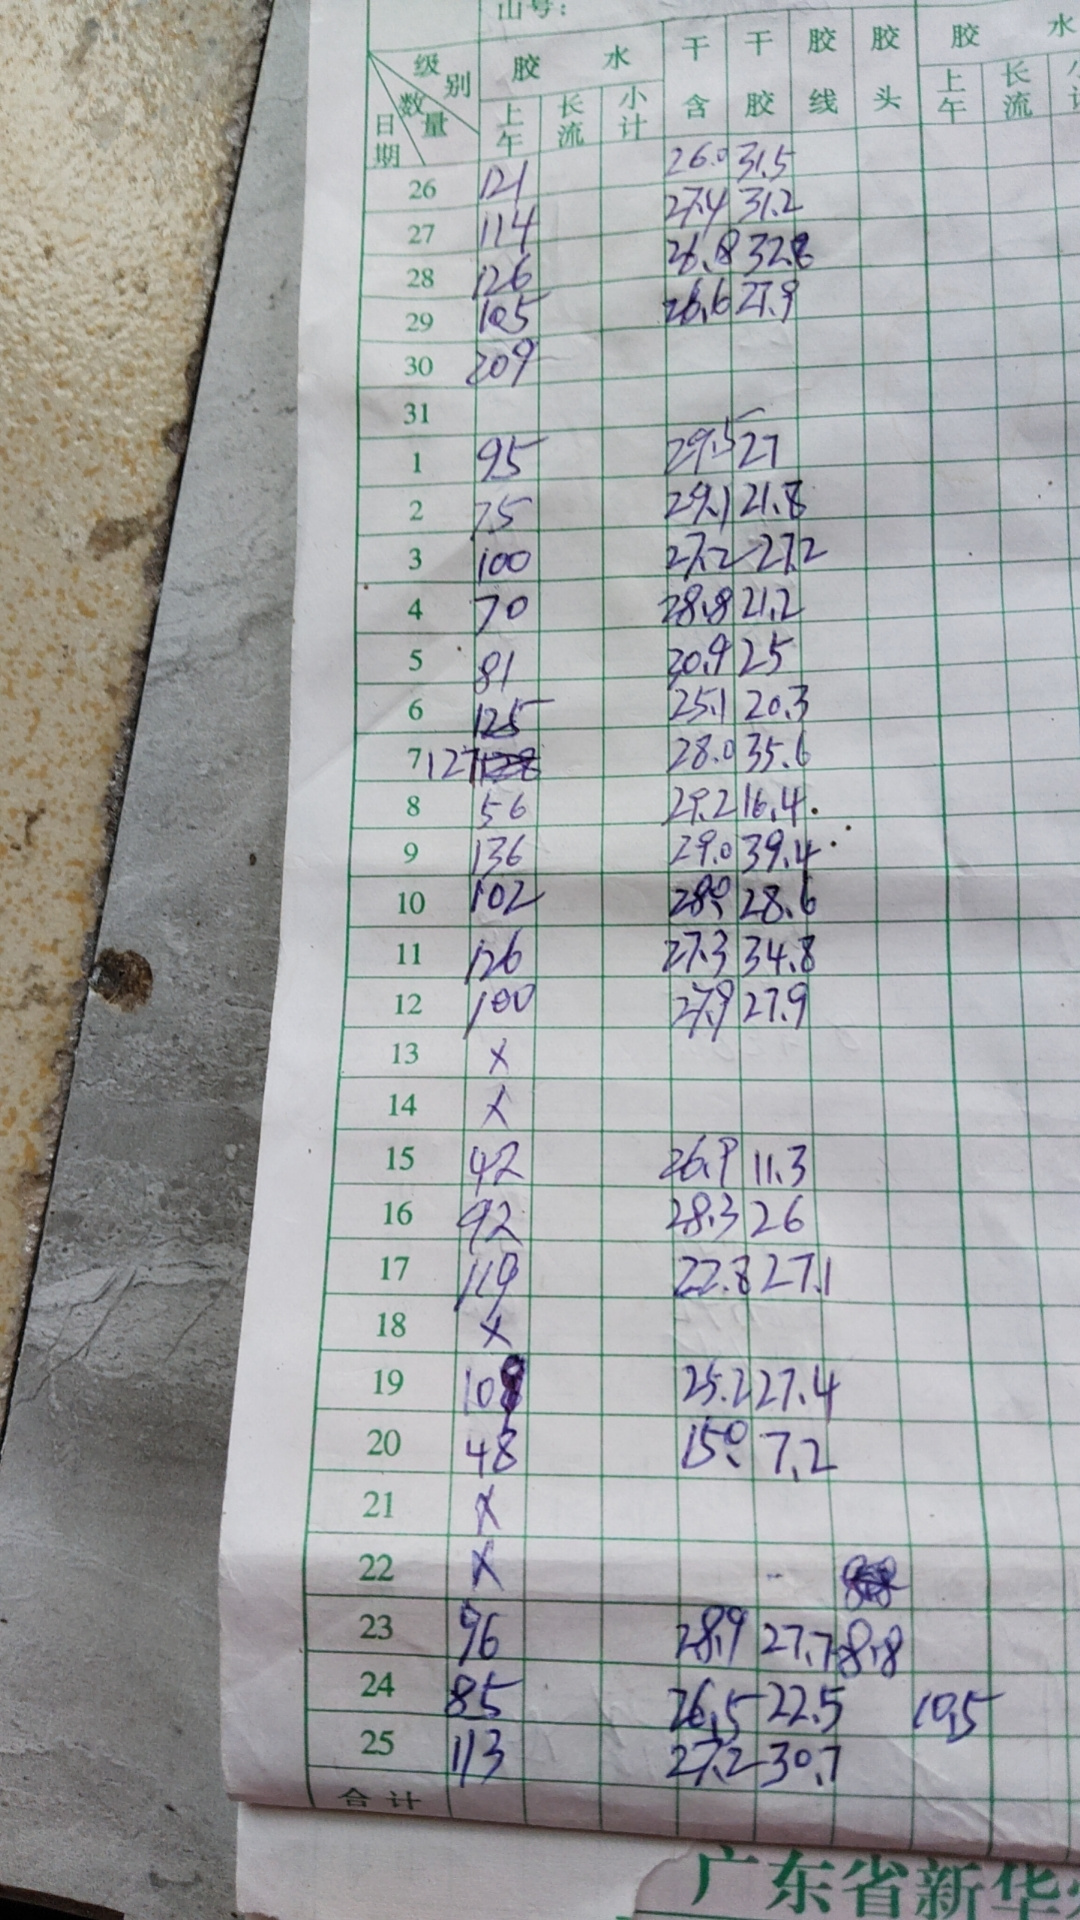 山号：
级别 数量 日期 胶水 干含 干胶 胶线 胶头 胶水
上午 长流 小计 上午 长流 小计
26 121 26.0 31.5
27 114 27.4 31.2
28 126 26.8 32.8
29 105 26.6 27.9
30 209
31
1 95 29.5 27
2 75 29.1 21.8
3 100 27.2 27.2
4 70 28.8 21.2
5 81 30.9 25
6 125 25.1 20.3
7 127 28.0 35.6
8 56 29.2 16.4
9 136 29.0 39.4
10 102 28.0 28.6
11 126 27.3 34.8
12 100 27.9 27.9
13 X
14 X
15 42 26.9 11.3
16 92 28.3 26
17 119 22.8 27.1
18 X
19 109 25.2 27.4
20 48 15.0 7.2
21 X
22 X
23 96 28.9 27.7 8.8
24 85 26.5 22.5 10.5
25 113 27.2 30.7
合计
广东省新华